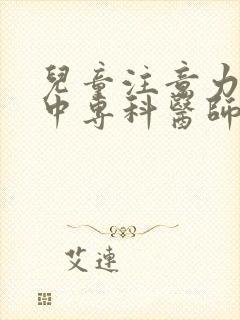 兒童注意力
中專科醫師
艾連